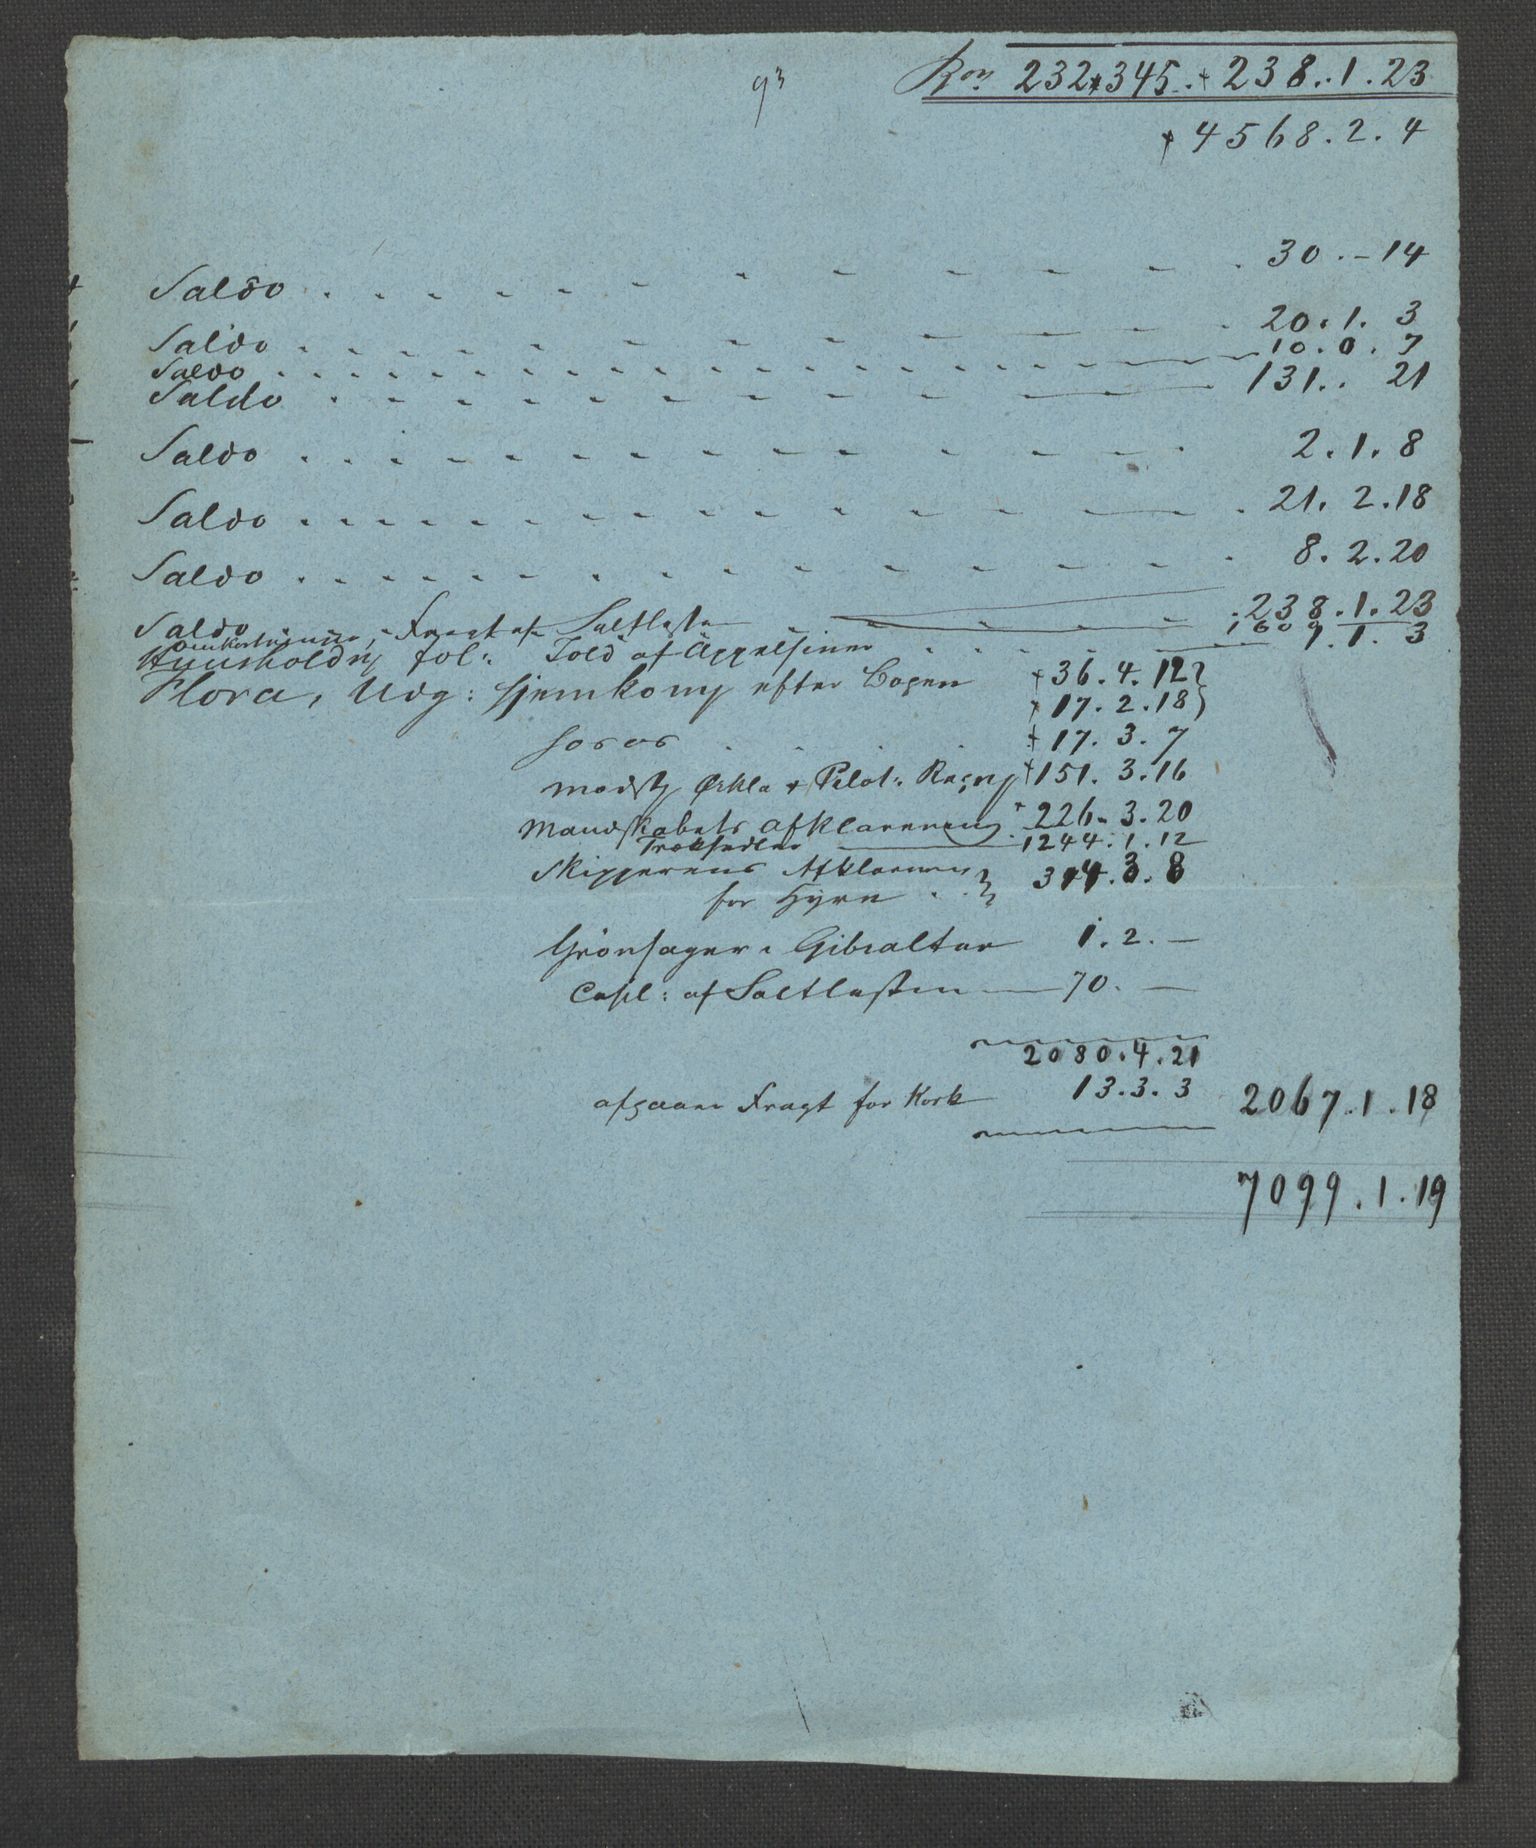 93
232 345. 238. 1. 23
4568. 2. 4
Saldo 30. - 14
Saldo 20. 1. 3
Saldo 10. 0. 7
Saldo 131. . 21
Saldo 2. 1. 8
Saldo 21. 2. 18
Saldo 8. 2. 20
Saldo 238. 1. 23
Fragt af Saltlasten
fol: Told af Appelsiner 1609. 1. 3
Flora, Udg: hjemkomg efter Bogen 36. 4. 12
17. 2. 18
17. 3. 7
Ørkla + Pilot: Regng 151. 3. 16
Mandskabets afklarering 226. 3. 20
Træksedler 1244. 1. 12
Skipperens Afklarering
for Hyre 314. 3. 8
Grönsager i Gibraltar 1. 2. —
Capl: af Saltlasten 70. —
2080. 4. 21
afgaar Fragt for Kork 13. 3. 3 2067. 1. 18
7099. 1. 19